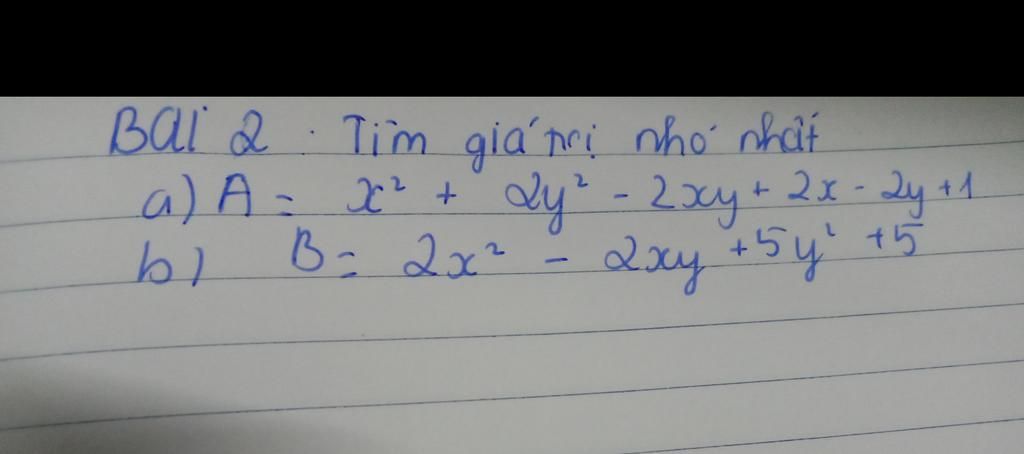 Bài 2. Tìm giá trị nhỏ nhất
a) A = x² + 2y² - 2xy + 2x - 2y + 1
b) B = 2x² - 2xy + 5y² + 5